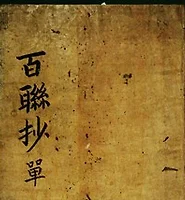 百聯抄單